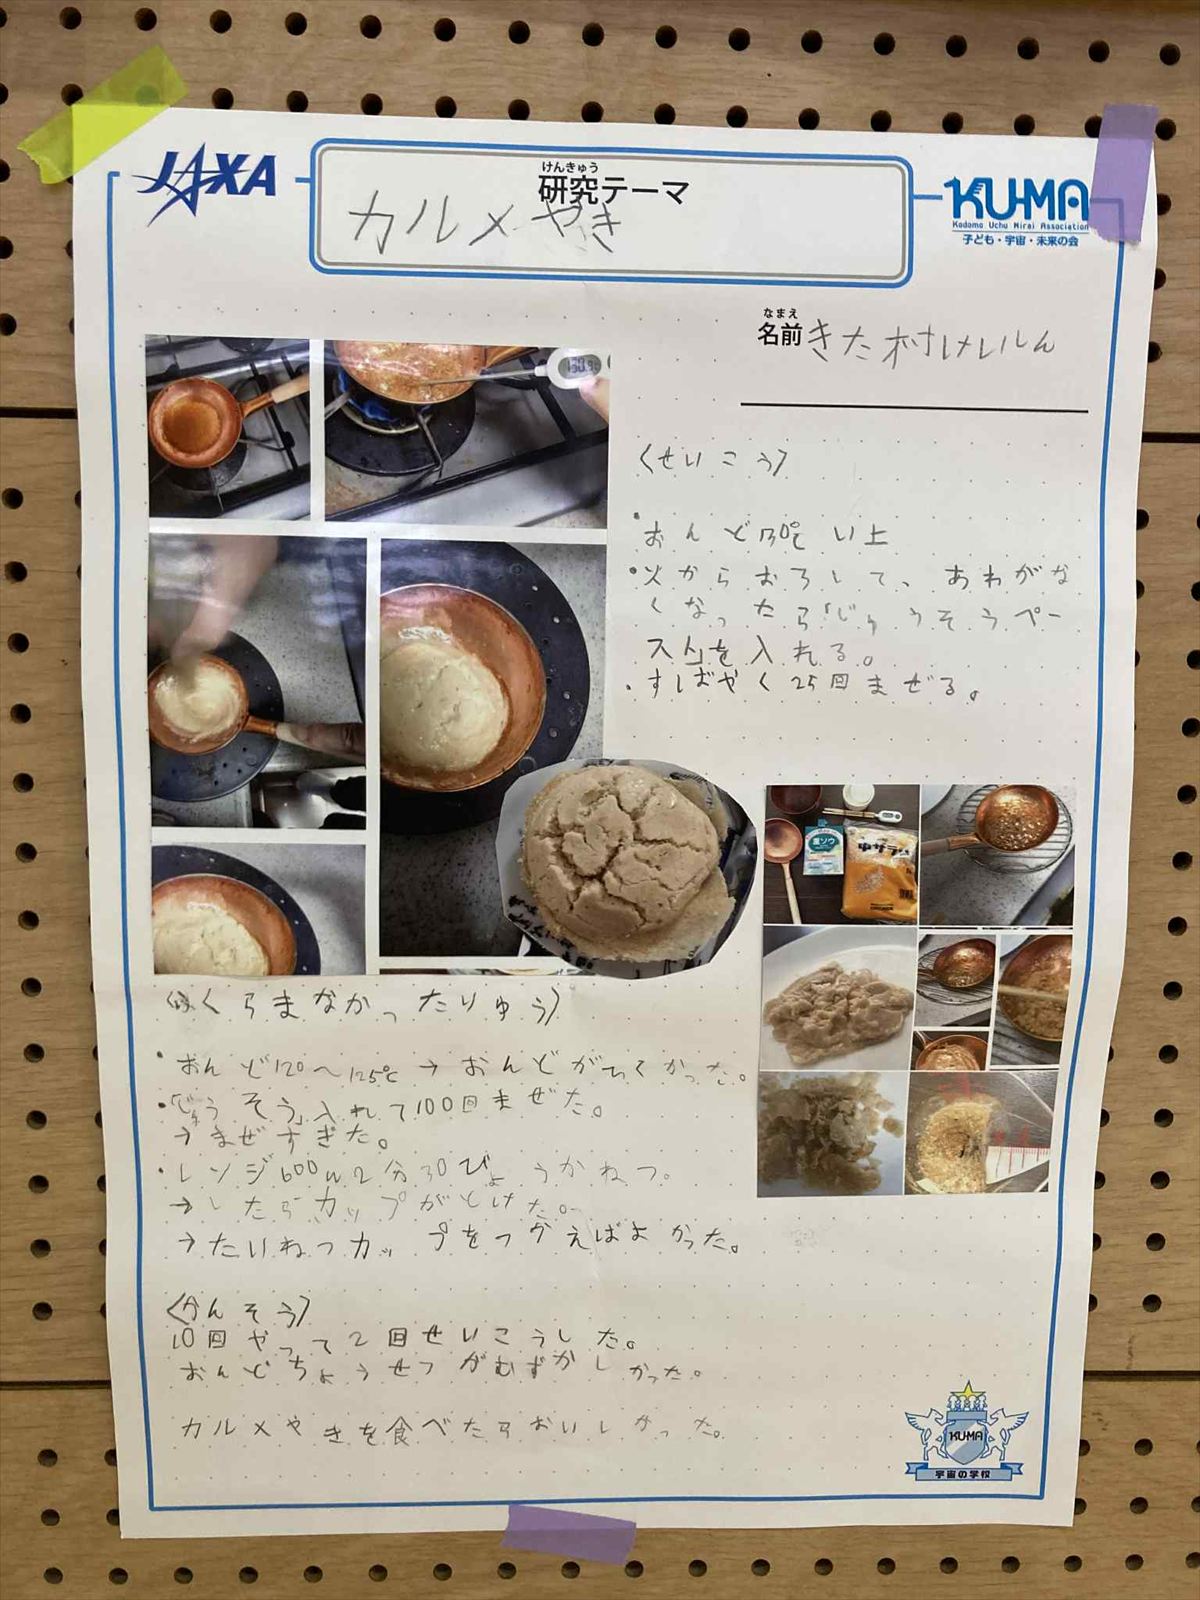 JAXA
けんきゅう
研究テーマ
カルメやき
KU-MA
Kodomo Uchu Mirai Association
子ども・宇宙・未来の会
なまえ
名前 きた村けいしん
〈せいこう〉
・おんど130℃い上
・火からおろして、あわがな
くなったら「じゅうそうペー
スト」を入れる。
・すばやく25回まぜる。
重ソウ
中ザラ
〈ふくらまなかったりゆう〉
・おんど120〜125℃→おんどがひくかった。
・「じゅうそう」入れて100回まぜた。
→まぜすぎた。
・レンジ600w2分30びょうかねつ。
→したらカップがとけた。
→たいねつカップをつかえばよかった。
〈かんそう〉
10回やって2回せいこうした。
おんどちょうせつがむずかしかった。
カルメやきを食べたらおいしかった。
KU-MA
宇宙の学校